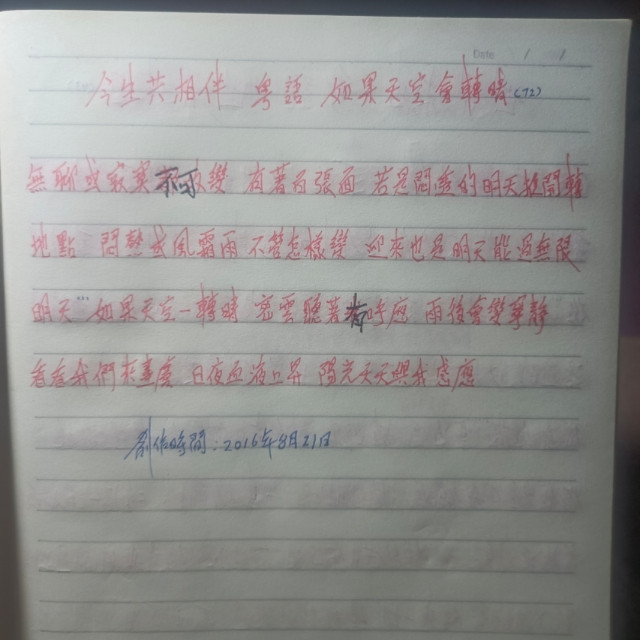 Date / /
今生共相伴 粵語 如果天空會轉晴(72)
無聊或寂寞不可改變 有著百張面 若是問舊的明天 轉
地點 悶熱或風霜雨 不若怎樣變 迎來也是明天能過無限
明天… 如果天空一轉晴 密雲聽著 呼應 雨後會變寧靜
看看我們來重慶 日夜血液上昇 陽光天天與我感應
創作時間：2016年8月21日